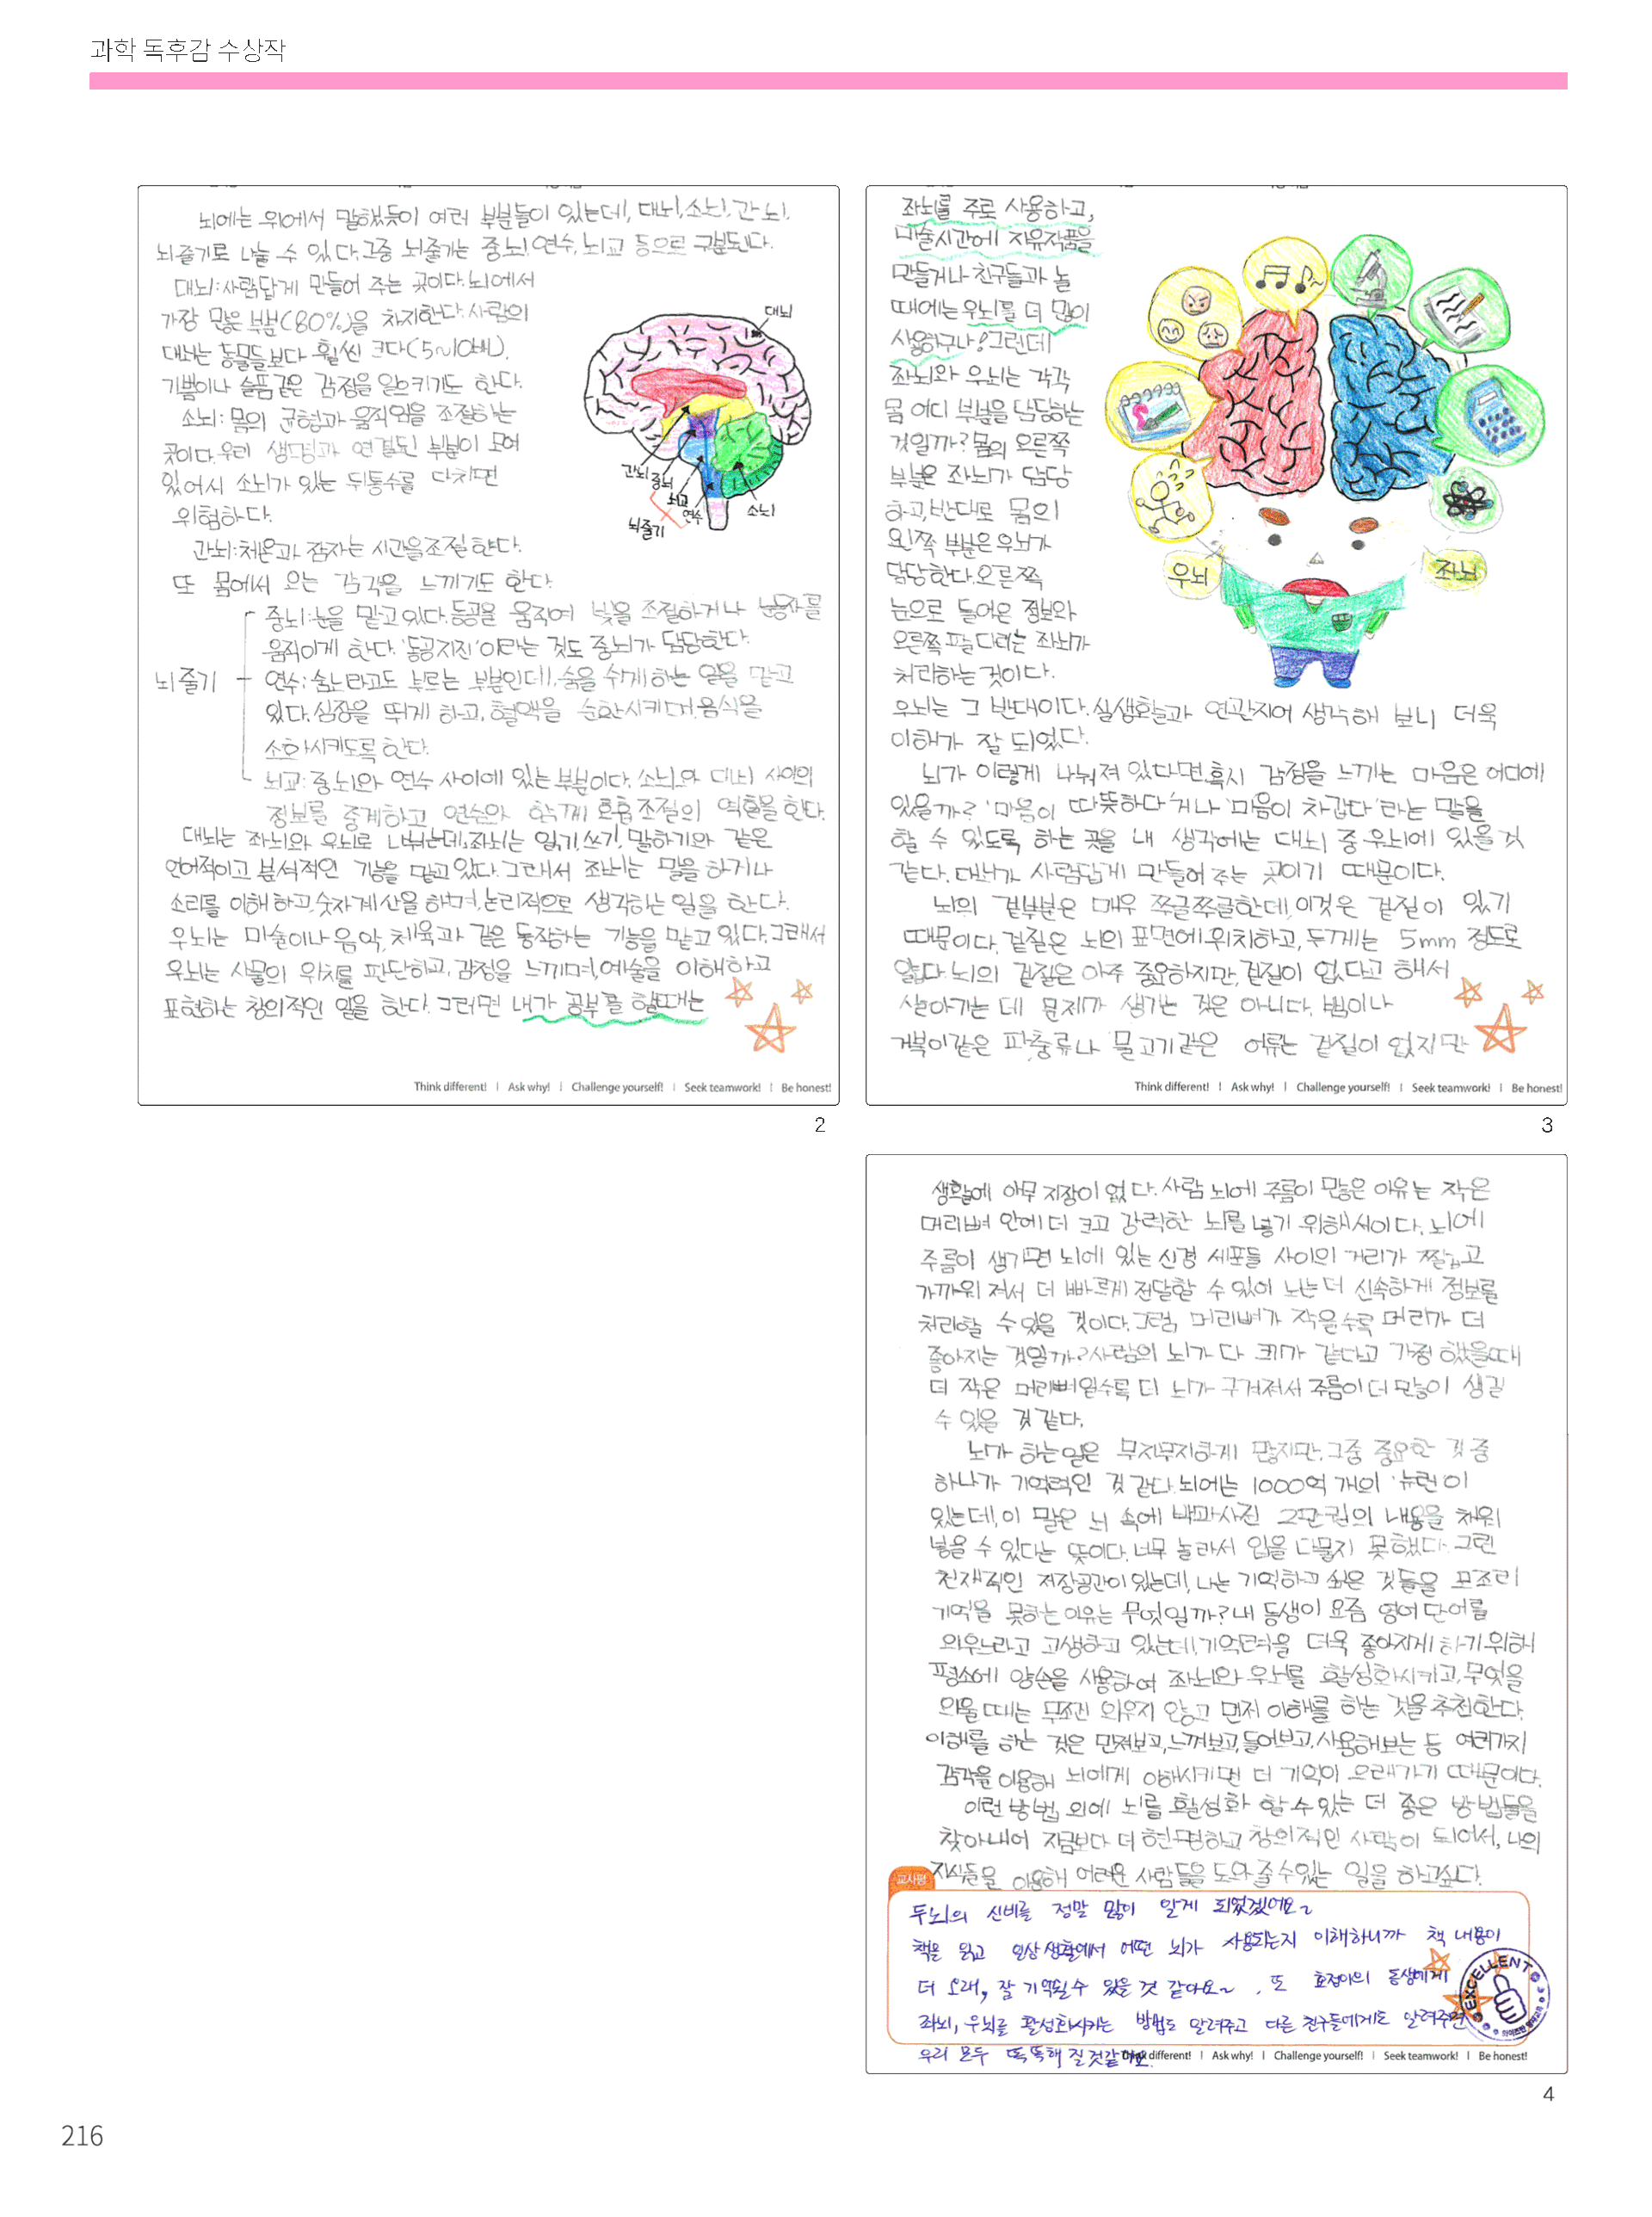 과학 독후감 수상작
뇌에는 위에서 말했듯이 여러 부분들이 있는데, 대뇌, 소뇌, 간뇌,
뇌줄기로 나눌 수 있다. 그중 뇌줄기는 중뇌, 연수, 뇌교 등으로 구분된다.
대뇌: 사람답게 만들어 주는 곳이다. 뇌에서
가장 많은 부분(80%)을 차지한다. 사람의
대뇌는 동물들보다 훨씬 크다(5~10배).
기쁨이나 슬픔같은 감정을 일으키기도 한다.
소뇌: 몸의 균형과 움직임을 조절하는
곳이다. 우리 생명과 연결된 부분이 모여
있어서 소뇌가 있는 뒤통수를 다치면
위험하다.
간뇌: 체온과 잠자는 시간을 조절한다.
또 몸에서 오는 감각을 느끼기도 한다.
대뇌
간뇌
중뇌
뇌교
연수
소뇌
뇌줄기
뇌줄기
중뇌: 눈을 맡고있다. 동공을 움직여 빛을 조절하거나 눈동자를
움직이게 한다. '동공지진'이라는 것도 중뇌가 담당한다.
연수: 숨뇌라고도 부르는 부분인데, 숨을 쉬게하는 일을 맡고
있다. 심장을 뛰게 하고, 혈액을 순환시키며, 음식을
소화시키도록 한다.
뇌교: 중뇌와 연수 사이에 있는 부분이다. 소뇌와 대뇌 사이의
정보를 중계하고 연수와 함께 호흡 조절의 역할을 한다.
대뇌는 좌뇌와 우뇌로 나뉘는데, 좌뇌는 읽기, 쓰기, 말하기와 같은
언어적이고 분석적인 기능을 맡고 있다. 그래서 좌뇌는 말을 하거나
소리를 이해하고, 숫자 계산을 하며, 논리적으로 생각하는 일을 한다.
우뇌는 미술이나 음악, 체육과 같은 동작하는 기능을 맡고 있다. 그래서
우뇌는 사물의 위치를 판단하고, 감정을 느끼며, 예술을 이해하고
표현하는 창의적인 일을 한다. 그러면 내가 공부를 할때는
Think different! | Ask why! | Challenge yourself! | Seek teamwork! | Be honest!
2
좌뇌를 주로 사용하고,
미술시간에 자유작품을
만들거나 친구들과 놀
때에는 우뇌를 더 많이
사용하구나! 그런데
좌뇌와 우뇌는 각각
몸 어디 부분을 담당하는
것일까? 몸의 오른쪽
부분은 좌뇌가 담당
하고, 반대로 몸의
왼쪽 부분은 우뇌가
담당한다. 오른쪽
눈으로 들어온 정보와
오른쪽 팔 다리는 좌뇌가
처리하는 것이다.
우뇌
좌뇌
우뇌는 그 반대이다. 실생활과 연관지어 생각해 보니 더욱
이해가 잘 되었다.
뇌가 이렇게 나눠져 있다면, 혹시 감정을 느끼는 마음은 어디에
있을까? '마음이 따뜻하다'거나 '마음이 차갑다'라는 말을
할 수 있도록 하는 곳은 내 생각에는 대뇌 중 우뇌에 있을 것
같다. 대뇌가 사람답게 만들어 주는 곳이기 때문이다.
뇌의 겉부분은 매우 쭈글쭈글한데, 이것은 겉질이 있기
때문이다. 겉질은 뇌의 표면에 위치하고, 두께는 5mm 정도로
얇다. 뇌의 겉질은 아주 중요하지만, 겉질이 없다고 해서
살아가는 데 문제가 생기는 것은 아니다. 뱀이나
거북이같은 파충류나 물고기같은 어류는 겉질이 없지만
Think different! | Ask why! | Challenge yourself! | Seek teamwork! | Be honest!
3
생활에 아무 지장이 없다. 사람 뇌에 주름이 많은 이유는 작은
머리뼈 안에 더 크고 강력한 뇌를 넣기 위해서이다. 뇌에
주름이 생기면 뇌에 있는 신경 세포들 사이의 거리가 짧고
가까워 져서 더 빠르게 전달할 수 있어 뇌는 더 신속하게 정보를
처리할 수 있을 것이다. 그럼, 머리뼈가 작을수록 머리가 더
좋아지는 것일까? 사람의 뇌가 다 크기가 같다고 가정 했을때
더 작은 머리뼈일수록 더 뇌가 구겨져서 주름이 더 많이 생길
수 있을 것 같다.
뇌가 하는일은 무지무지하게 많지만, 그중 중요한 것 중
하나가 기억력인 것 같다. 뇌에는 1000억 개의 '뉴런'이
있는데, 이 말은 뇌 속에 백과사전 2만권의 내용을 채워
넣을 수 있다는 뜻이다. 너무 놀라서 입을 다물지 못했다. 그런
천재적인 저장공간이 있는데, 나는 기억하고 싶은 것들을 모조리
기억을 못하는 이유는 무엇일까? 내 동생이 요즘 영어 단어를
외우느라고 고생하고 있는데, 기억력을 더욱 좋아지게 하기 위해
평소에 양손을 사용하여 좌뇌와 우뇌를 활성화시키고, 무엇을
외울 때는 무조건 외우지 않고 먼저 이해를 하는 것을 추천한다.
이해를 하는 것은 만져보고, 느껴보고, 들어보고, 사용해보는 등 여러가지
감각을 이용해 뇌에게 이해시키면 더 기억이 오래가기 때문이다.
이런 방법 외에 뇌를 활성화 할 수 있는 더 좋은 방법들을
찾아내어 지금보다 더 현명하고 창의적인 사람이 되어서, 나의
지식들을 이용해 어려운 사람들을 도와줄 수 있는 일을 하고싶다.
교사평
두뇌의 신비를 정말 많이 알게 되었겠어요~
책을 읽고 일상 생활에서 어떤 뇌가 사용되는지 이해하니까 책 내용이
더 오래, 잘 기억될 수 있을 것 같아요~. 또 효정이의 동생에게
좌뇌, 우뇌를 활성화시키는 방법도 알려주고 다른 친구들에게도 알려주면
우리 모두 똑똑해 질 것같아요.
EXCELLENT
Think different! | Ask why! | Challenge yourself! | Seek teamwork! | Be honest!
4
216